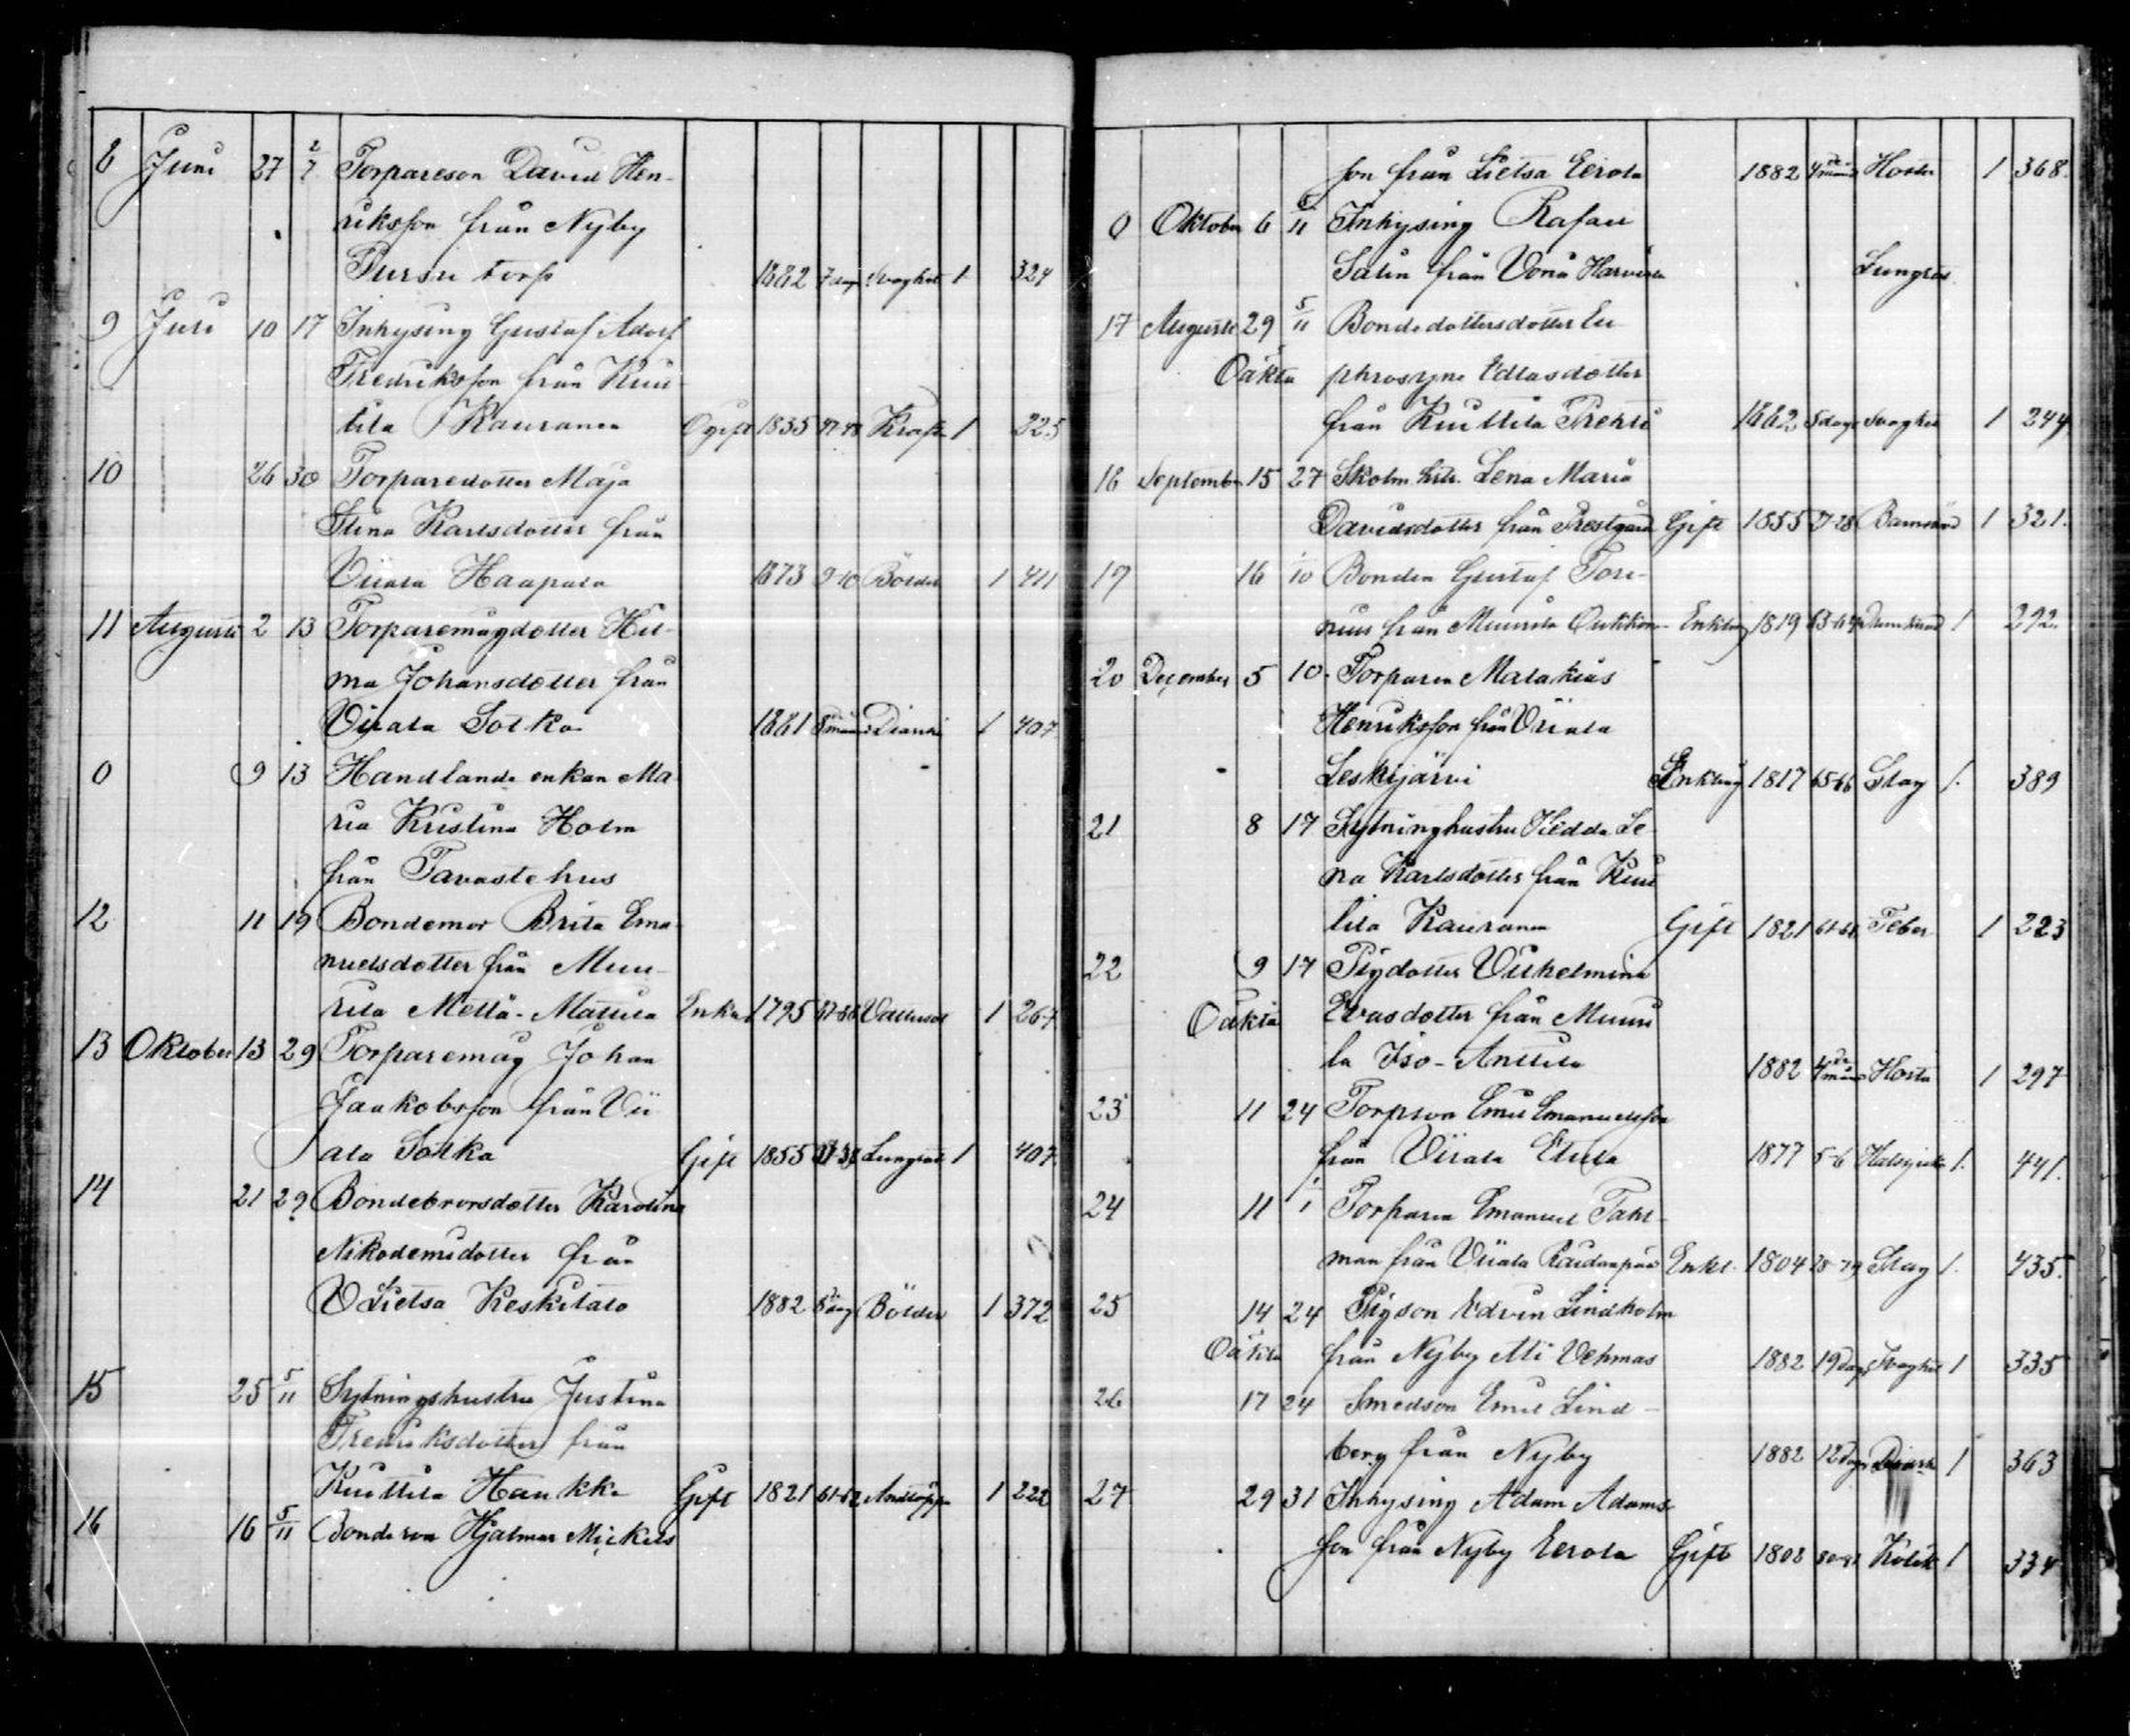 8 Juni 27 2/7 Torpareson David Hen-
riksson från Nyby
Pursu torp 1882 7 dag Svaghet 1 324
9 Juli 10 17 Inhysing Gustaf Adolf
Fredriksson från Kuu-
lila Kauranen Ogift 1835 47-48 Kräfta 1 225
10 26 30 Torparedotter Maja
Stina Karlsdotter från
Viiala Haapala 1873 9-10 Bölder 1 411
11 Augusti 2 13 Torparemågdotter Hil-
ma Johansdotter från
Viiala Sotka 1881 8 mån Diarrhe 1 407
0 9 13 Handlande enkan Ma-
ria Kristina Holm
från Tavastehus
12 11 19 Bondemor Brita Ema-
nuelsdotter från Muu-
rila Mellä-Mattila Enka 1795 87-88 Vattusot 1 267
13 Oktober 13 29 Torparemåg Johan
Jaakobsson från Vii-
ala Sotka Gift 1855 Lungsot 1 407
14 21 29 Bondebrorsdotter Karolina
Nikodemidotter från
Lietsa Keskitalo 1882 Bölder 1 372
15 25 5/11 Sytningshustru Justina
Fredriksdotter från
Kuttila Haukka Gift 1821 61-62 Andtäppa 1 222
16 16 5/11 Bondeson Hjalmar Mickels
son från Lietsa Eerola 1882 4 mån Hosta 1 368.
0 Oktober 6 5/11 Inhysing Rafael
Salin från Vonå Harviala Lungsot
17 Augusti 29 5/11 Bondedottersdotter Eu-
Oäkta phrosyne Edlasdotter
från Kuttila Prehti 1882 5 dagar Svaghet 1 244
18 September 15 27 Skolm. hstr. Lena Maria
Davidsdotter från Prestgård Gift 1855 27-28 Barnsäng 1 321.
19 16 1/10 Bonden Gustaf Tore-
nius från Muurila Outikka Enkling 1819 63-64 1 292.
20 December 5 10. Torparen Malakias
Henriksson från Viiala
Leskijärvi Enkling 1817 65-66 Slag 1. 389
21 8 17 Sytninghustru Hedda Le-
na Karlsdotter från Kuu-
lila Kauranen Gift 1821 61-62 Feber 1 223
22 9 17 Pigdotter Vilhelmina
Oäkta Evasdotter från Muuri-
la Iso-Anttila 1882 4 mån Hosta 1 297
23 11 24 Torpson Emil Emanuelsson
från Viiala Etula 1877 5-6 Halssjuka 1. 441.
24 11 1/1 Torparen Emanuel Fahl-
man från Viiala Raudanpää Enkl. 1804 78-79 Slag 1. 435.
25 14 24 Pigson Edvin Lindholm
Oäkta från Nyby Ali Vehmas 1882 19 dag. Svaghet 1 335
26 17 24 Smedson Emil Lind-
berg från Nyby 1882 12 dagar Diarrhe 1 363
27 29 31 Inhysing Adam Adams-
son från Nyby Eerola Gift 1802 80-81 Kolik 1 334